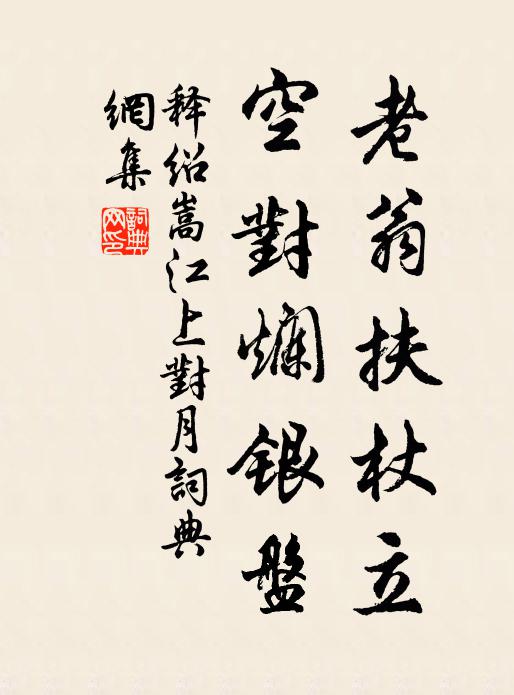 老翁扶杖立
空對爛銀盤
释紹嵩江上對月詞典
網集
詞典
网印